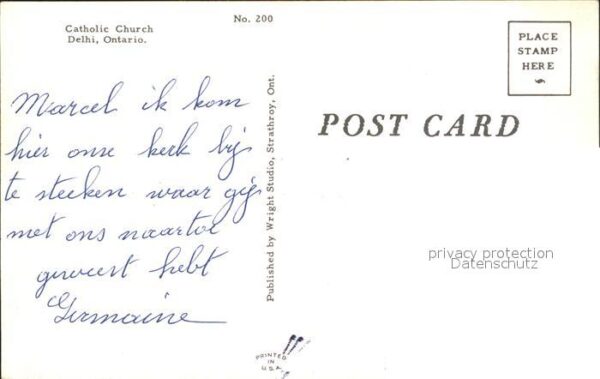 Catholic Church
Delhi, Ontario.
No. 200
PLACE
STAMP
HERE
POST CARD
Marcel ik kom
hier onse kerk bij
te steeken waar gij
met ons naartoe
geweest hebt
Germaine
Published by Wright Studio, Strathroy, Ont.
privacy protection
Datenschutz
PRINTED
IN
U.S.A.